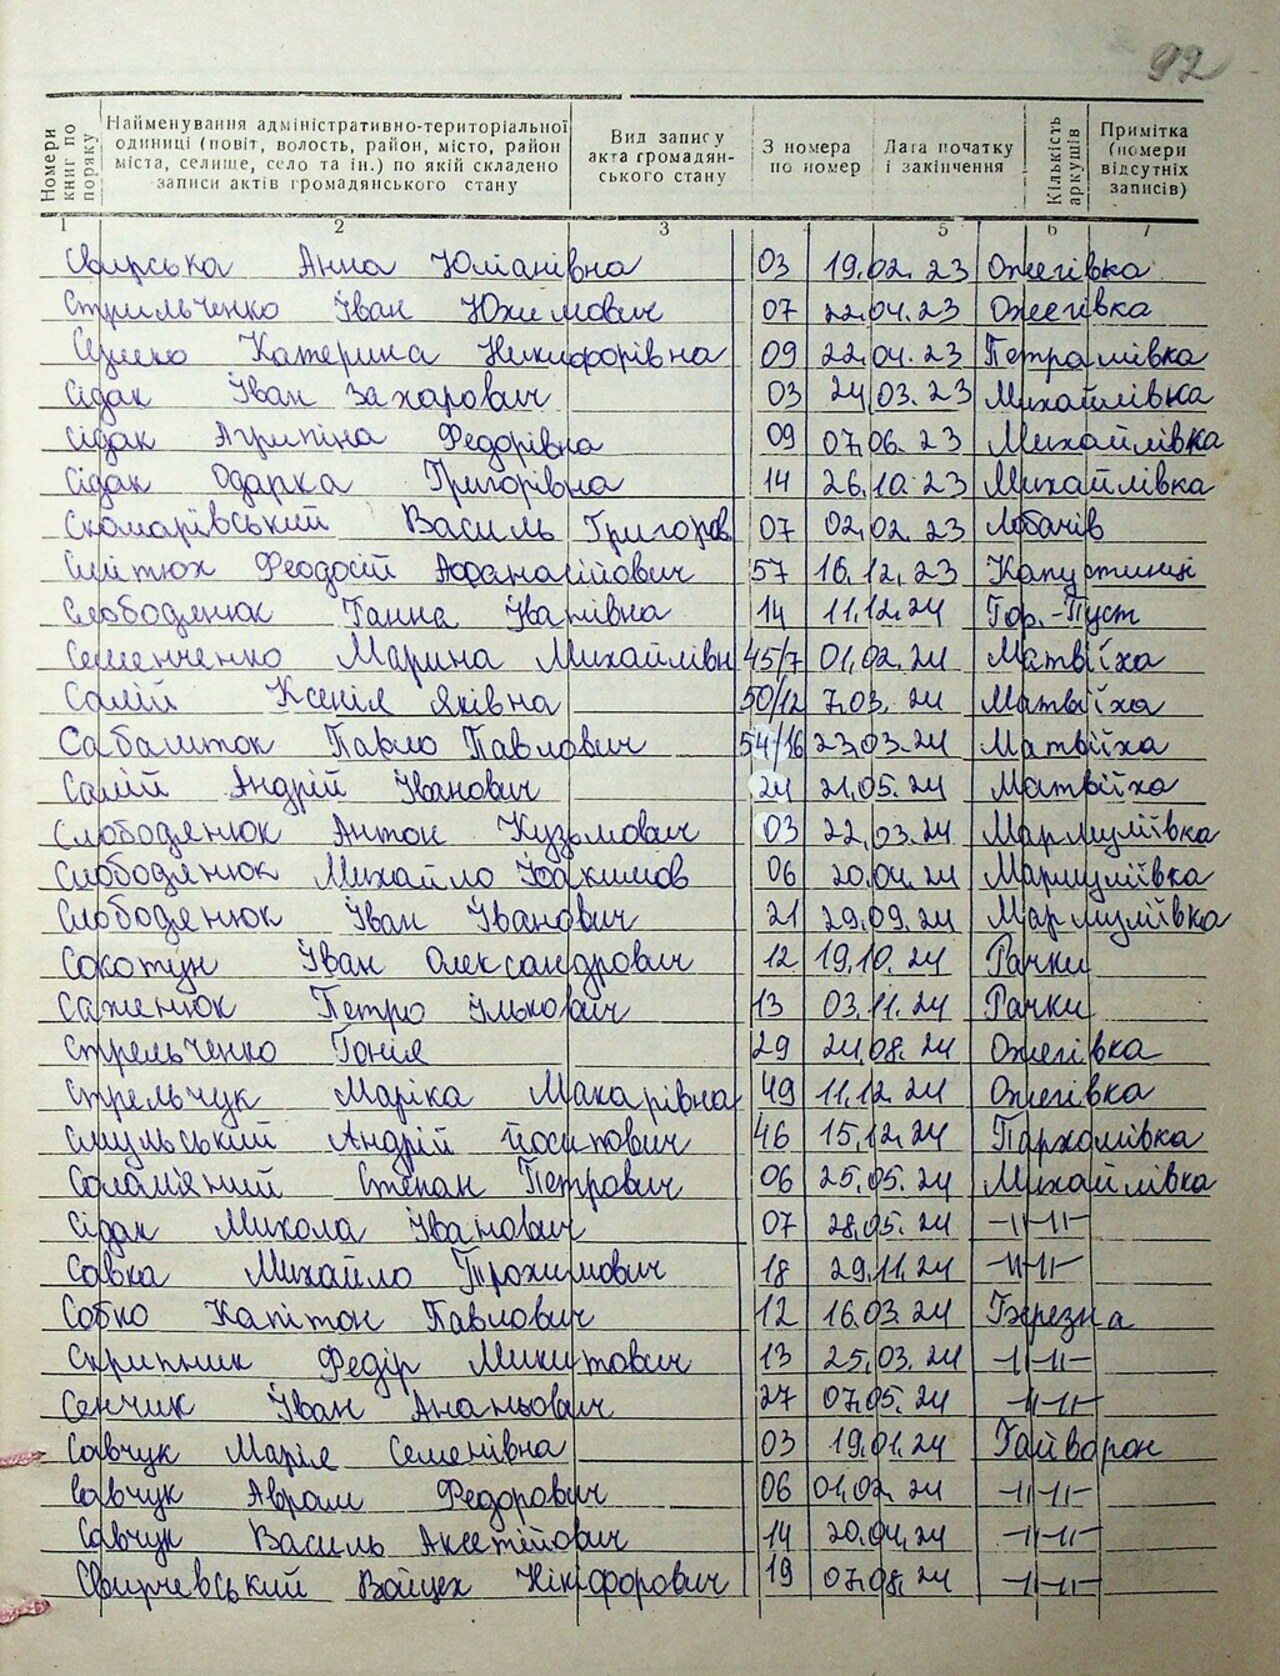 92
Номери книг по поряку
Найменування адміністративно-територіальної одиниці (повіт, волость, район, місто, район міста, селище, село та ін.) по якій складено записи актів громадянського стану
Вид запису акта громадян-ського стану
З номера по номер
Дата початку і закінчення
Кількість аркушів
Примітка (номери відсутніх записів)
1 2 3 4 5 6 7
Свирська Анна Юліанівна 03 19.02.23 Ожегівка
Стрильченко Іван Юхимович 07 22.04.23 Ожегівка
Катерина Никифорівна 09 22.04.23 Петрашівка
Сідак Іван Захарович 03 24.03.23 Михайлівка
Сідак Агрипіна Федорівна 09 07.06.23 Михайлівка
Сідак Одарка Григорівна 14 26.10.23 Михайлівка
Скомарівський Василь Григоров 07 02.02.23 Лобачів
Смітюх Феодосій Афанасійович 57 16.12.23 Капустинці
Слободянюк Ганна Іванівна 14 11.12.24 Гор.-Пуст
Семенченко Марина Михайлівн 45/7 01.02.24 Матвіїха
Самій Ксенія Яківна 50/12 7.03.24 Матвіїха
Сабашток Павло Павлович 54/16 23.03.24 Матвіїха
Самій Андрій Іванович 24 21.05.24 Матвіїха
Слободянюк Антон Кузьмович 03 22.03.24 Мармуліївка
Слободянюк Михайло Іоакимов 06 20.04.24 Мармуліївка
Слободянюк Іван Іванович 21 29.09.24 Мармуліївка
Сокотун Іван Олександрович 12 19.10.24 Рачки
Саженюк Петро Ількович 13 03.11.24 Рачки
Стрельченко Гонія 29 24.08.24 Ожегівка
Стрельчук Маріка Макарівна 49 11.12.24 Ожегівка
Смульський Андрій Йосипович 46 15.12.24 Пархомівка
Солом'яний Степан Петрович 06 25.05.24 Михайлівка
Сідак Микола Іванович 07 28.05.24 -//-//-
Савка Михайло Трохимович 18 29.11.24 -//-//-
Собко Капітон Павлович 12 16.03.24 Березна
Скрипник Федір Микитович 13 25.03.24 -//-//-
Сенчик Іван Ананьович 27 07.05.24 -//-//-
Савчук Марія Семенівна 03 19.01.24 Гайворон
Савчук Аврам Федорович 06 01.02.24 -//-//-
Савчук Василь Аксетійович 14 20.04.24 -//-//-
Свирчевський Войцех Нікіфорович 19 07.08.24 -//-//-